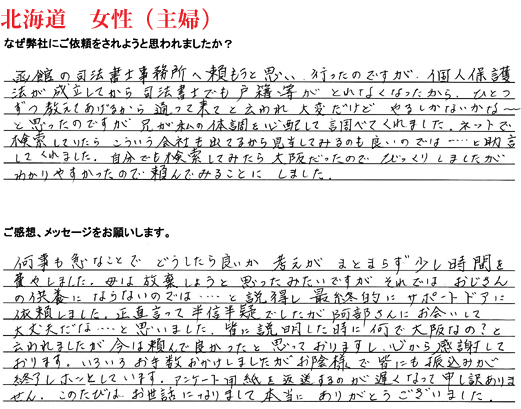 北海道　女性（主婦）
なぜ弊社にご依頼をされようと思われましたか？
函館の司法書士事務所へ頼もうと思い、行ったのですが、個人保護
法が成立してから司法書士でも戸籍等がとれなくなったから、ひとつ
ずつ教えてあげるから通って来てと云われ大変だけど やるしかないかな～
と思ったのですが 兄が私の体調を心配して調べてくれました。ネットで
検索していたら こういう会社も出てるから見当してみるのも良いのでは……と助言
してくれました。自分でも検索してみたら大阪だったので びっくりしましたが
わかりやすかったので頼んでみることに しました。
ご感想、メッセージをお願いします。
何事も急なことで どうしたら良いか 考えが まとまらず少し時間を
費やしました。母は放棄しようと思ったみたいですが それでは おじさん
の供養に ならないのでは……と説得し最終的にサポートドアに
依頼しました。正直言って半信半疑でしたが阿部さんにお会いして
大丈夫だな……と思いました。皆に説明した時に何で大阪なの？と
云われましたが 今は頼んで良かったと思っておりますし、心から感謝して
おります。いろいろお手数おかけしましたがお陰様で皆にも振込みが
終了しホッとしています。アンケート用紙を返送するのが遅くなって申し訳ありま
せん。このたびは お世話になりまして本当に ありがとうございました。